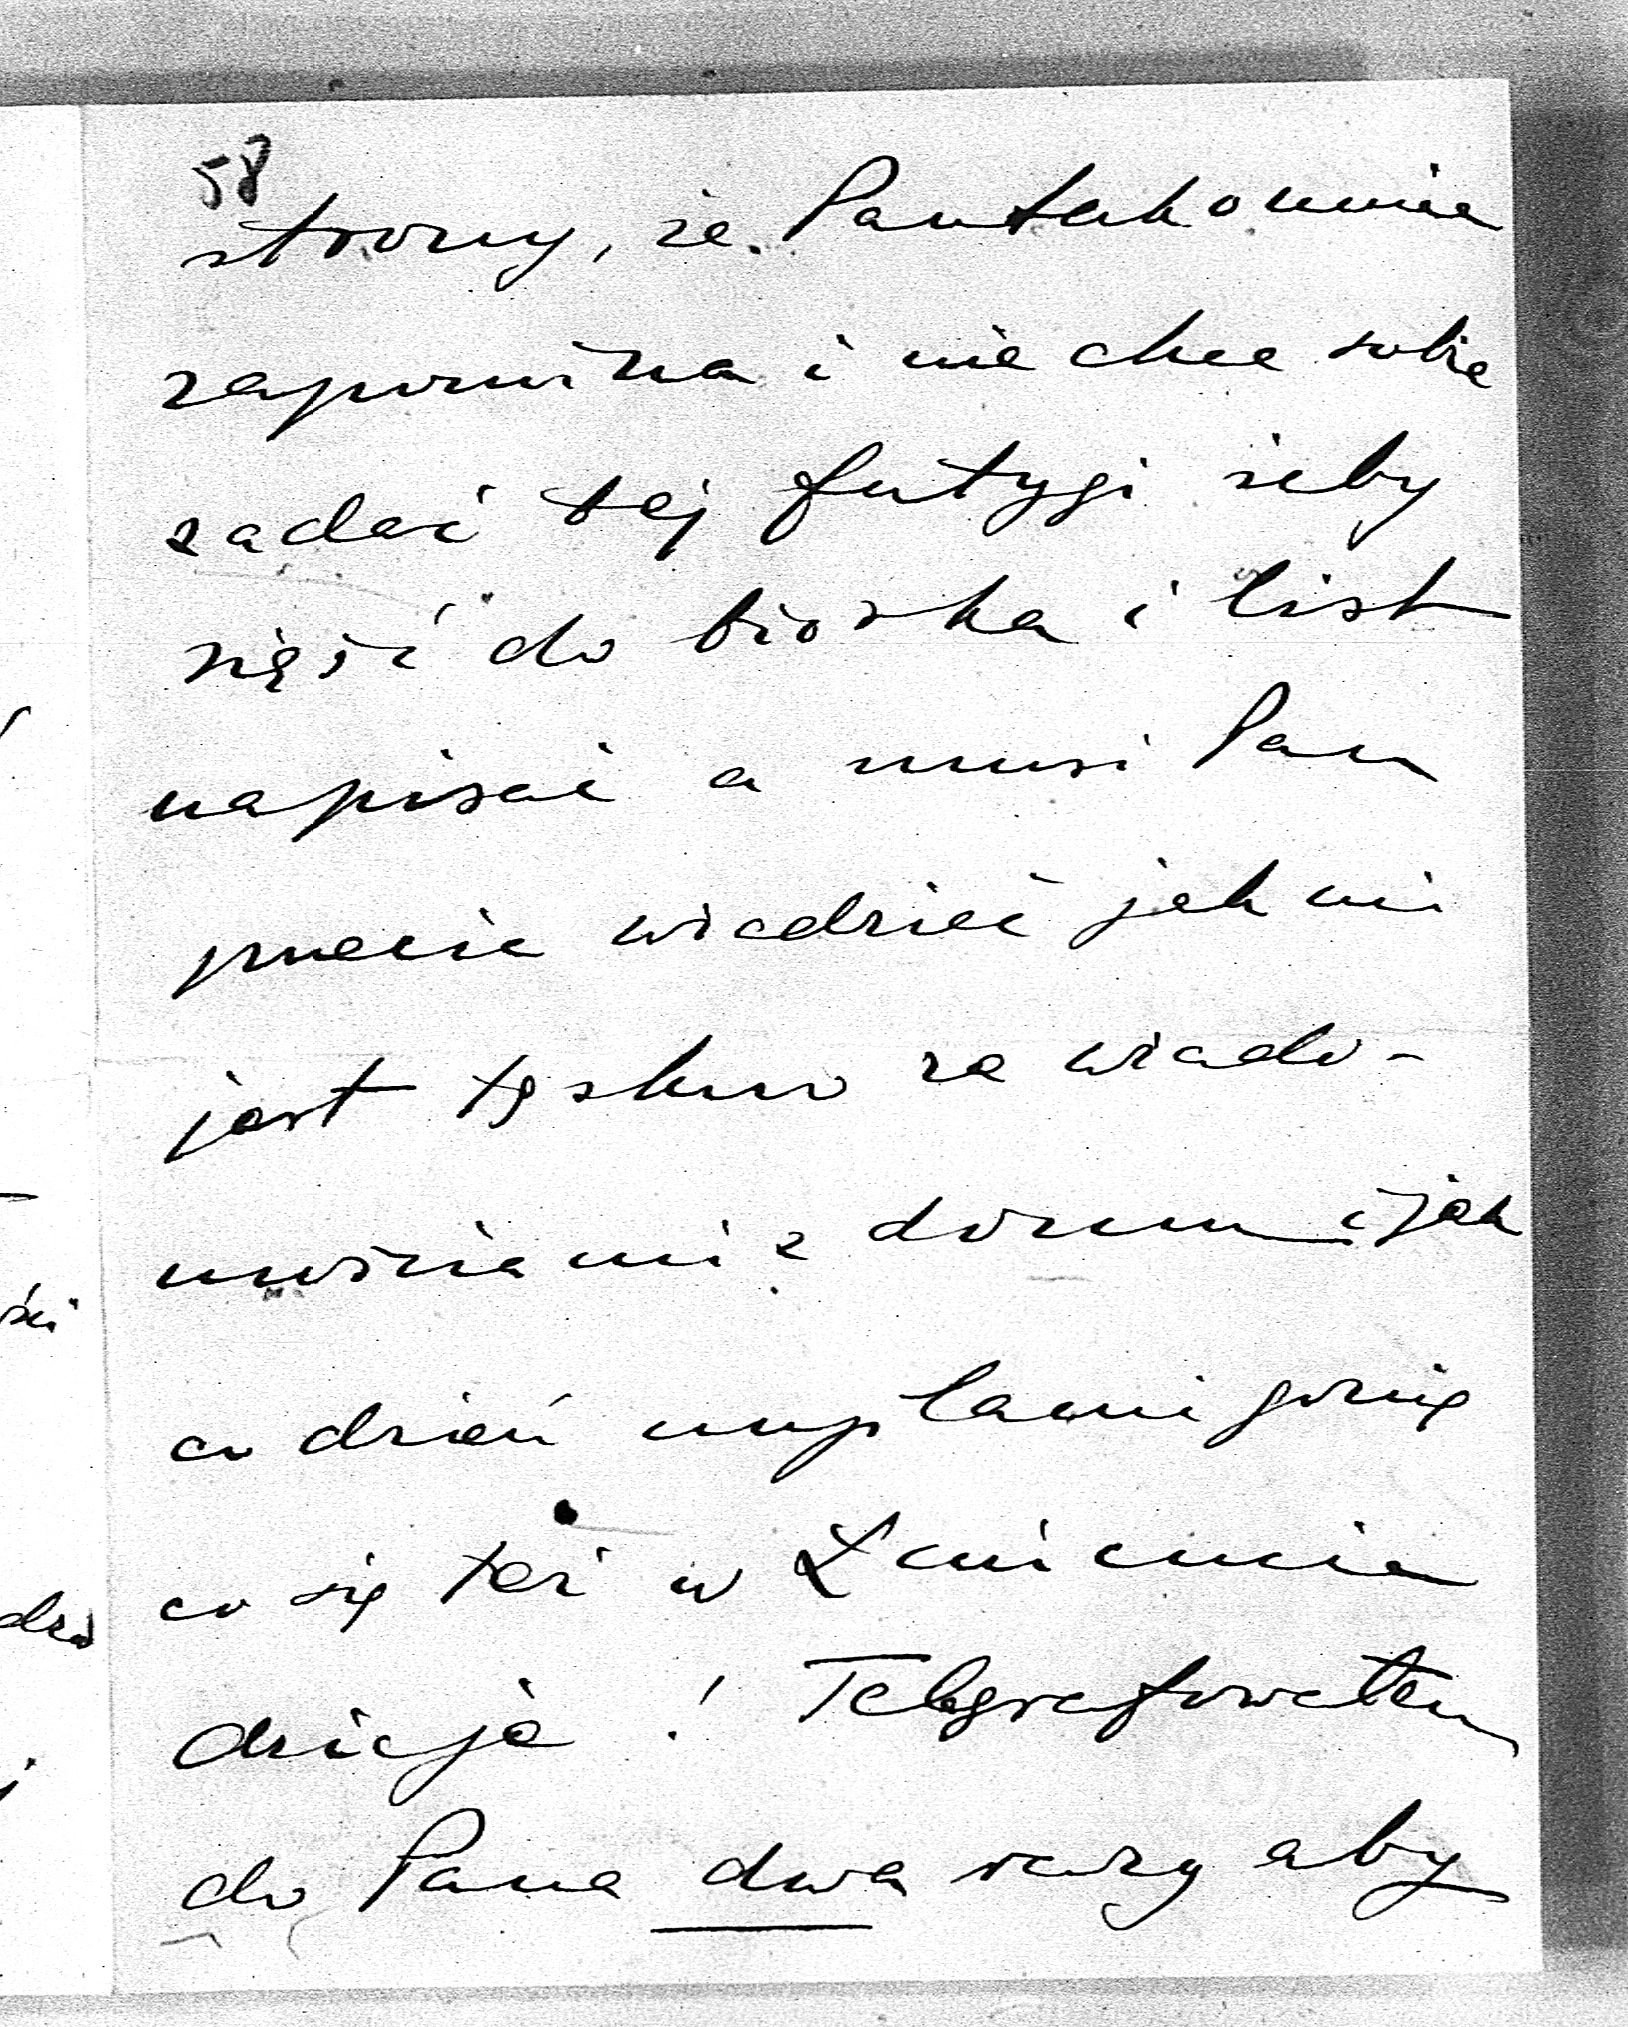 58
strony, że Pan tak o mnie
zapomina i nie chce sobie
zadać tej fatygi żeby
sięść do biórka i list
napisać a musi Pan
przecie wiedzieć jak mi
jest tęskno za wiado-
mościami z domu i jak
co dzień myślami gonię
co się też w Łanicucie
dzieje! Telegrafowałam
do Pana dwa razy aby